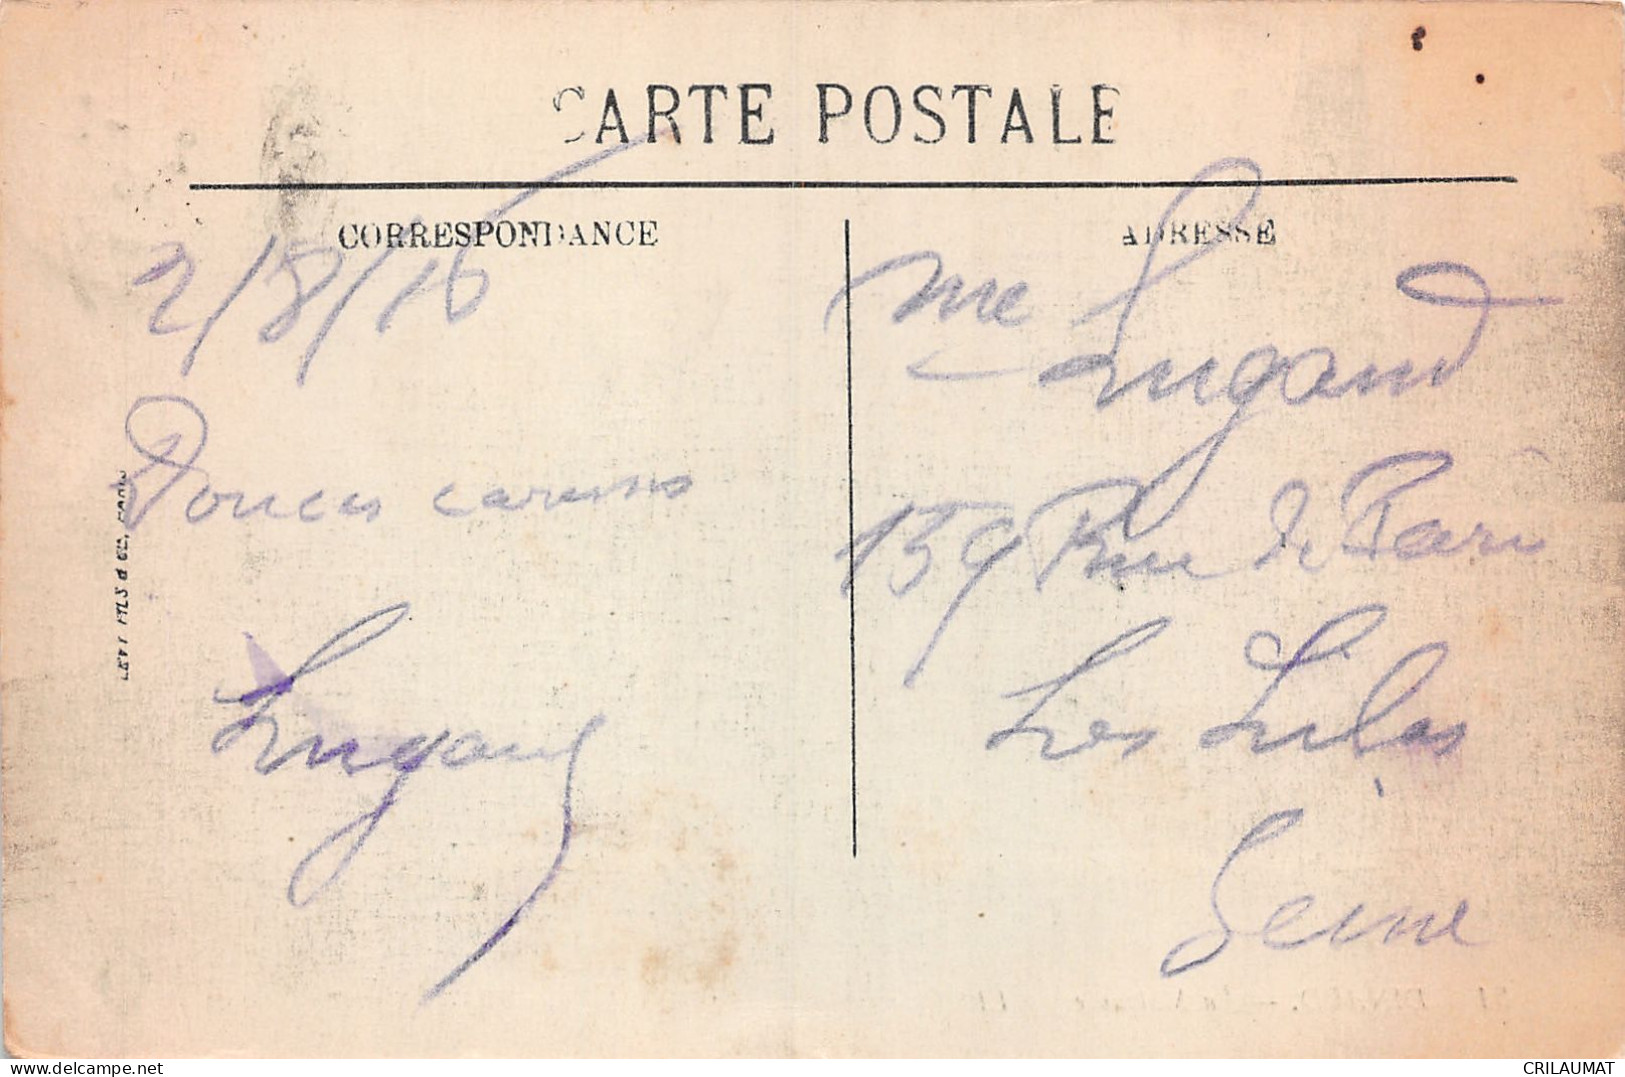 CARTE POSTALE
CORRESPONDANCE
ADRESSE
2/8/16
Douces caresses
Lugand
LEVY FILS & Cie, PARIS
Me Lugand
159 Rue de Paris
Les Lilas
Seine
delcampe.net
CRILAUMAT